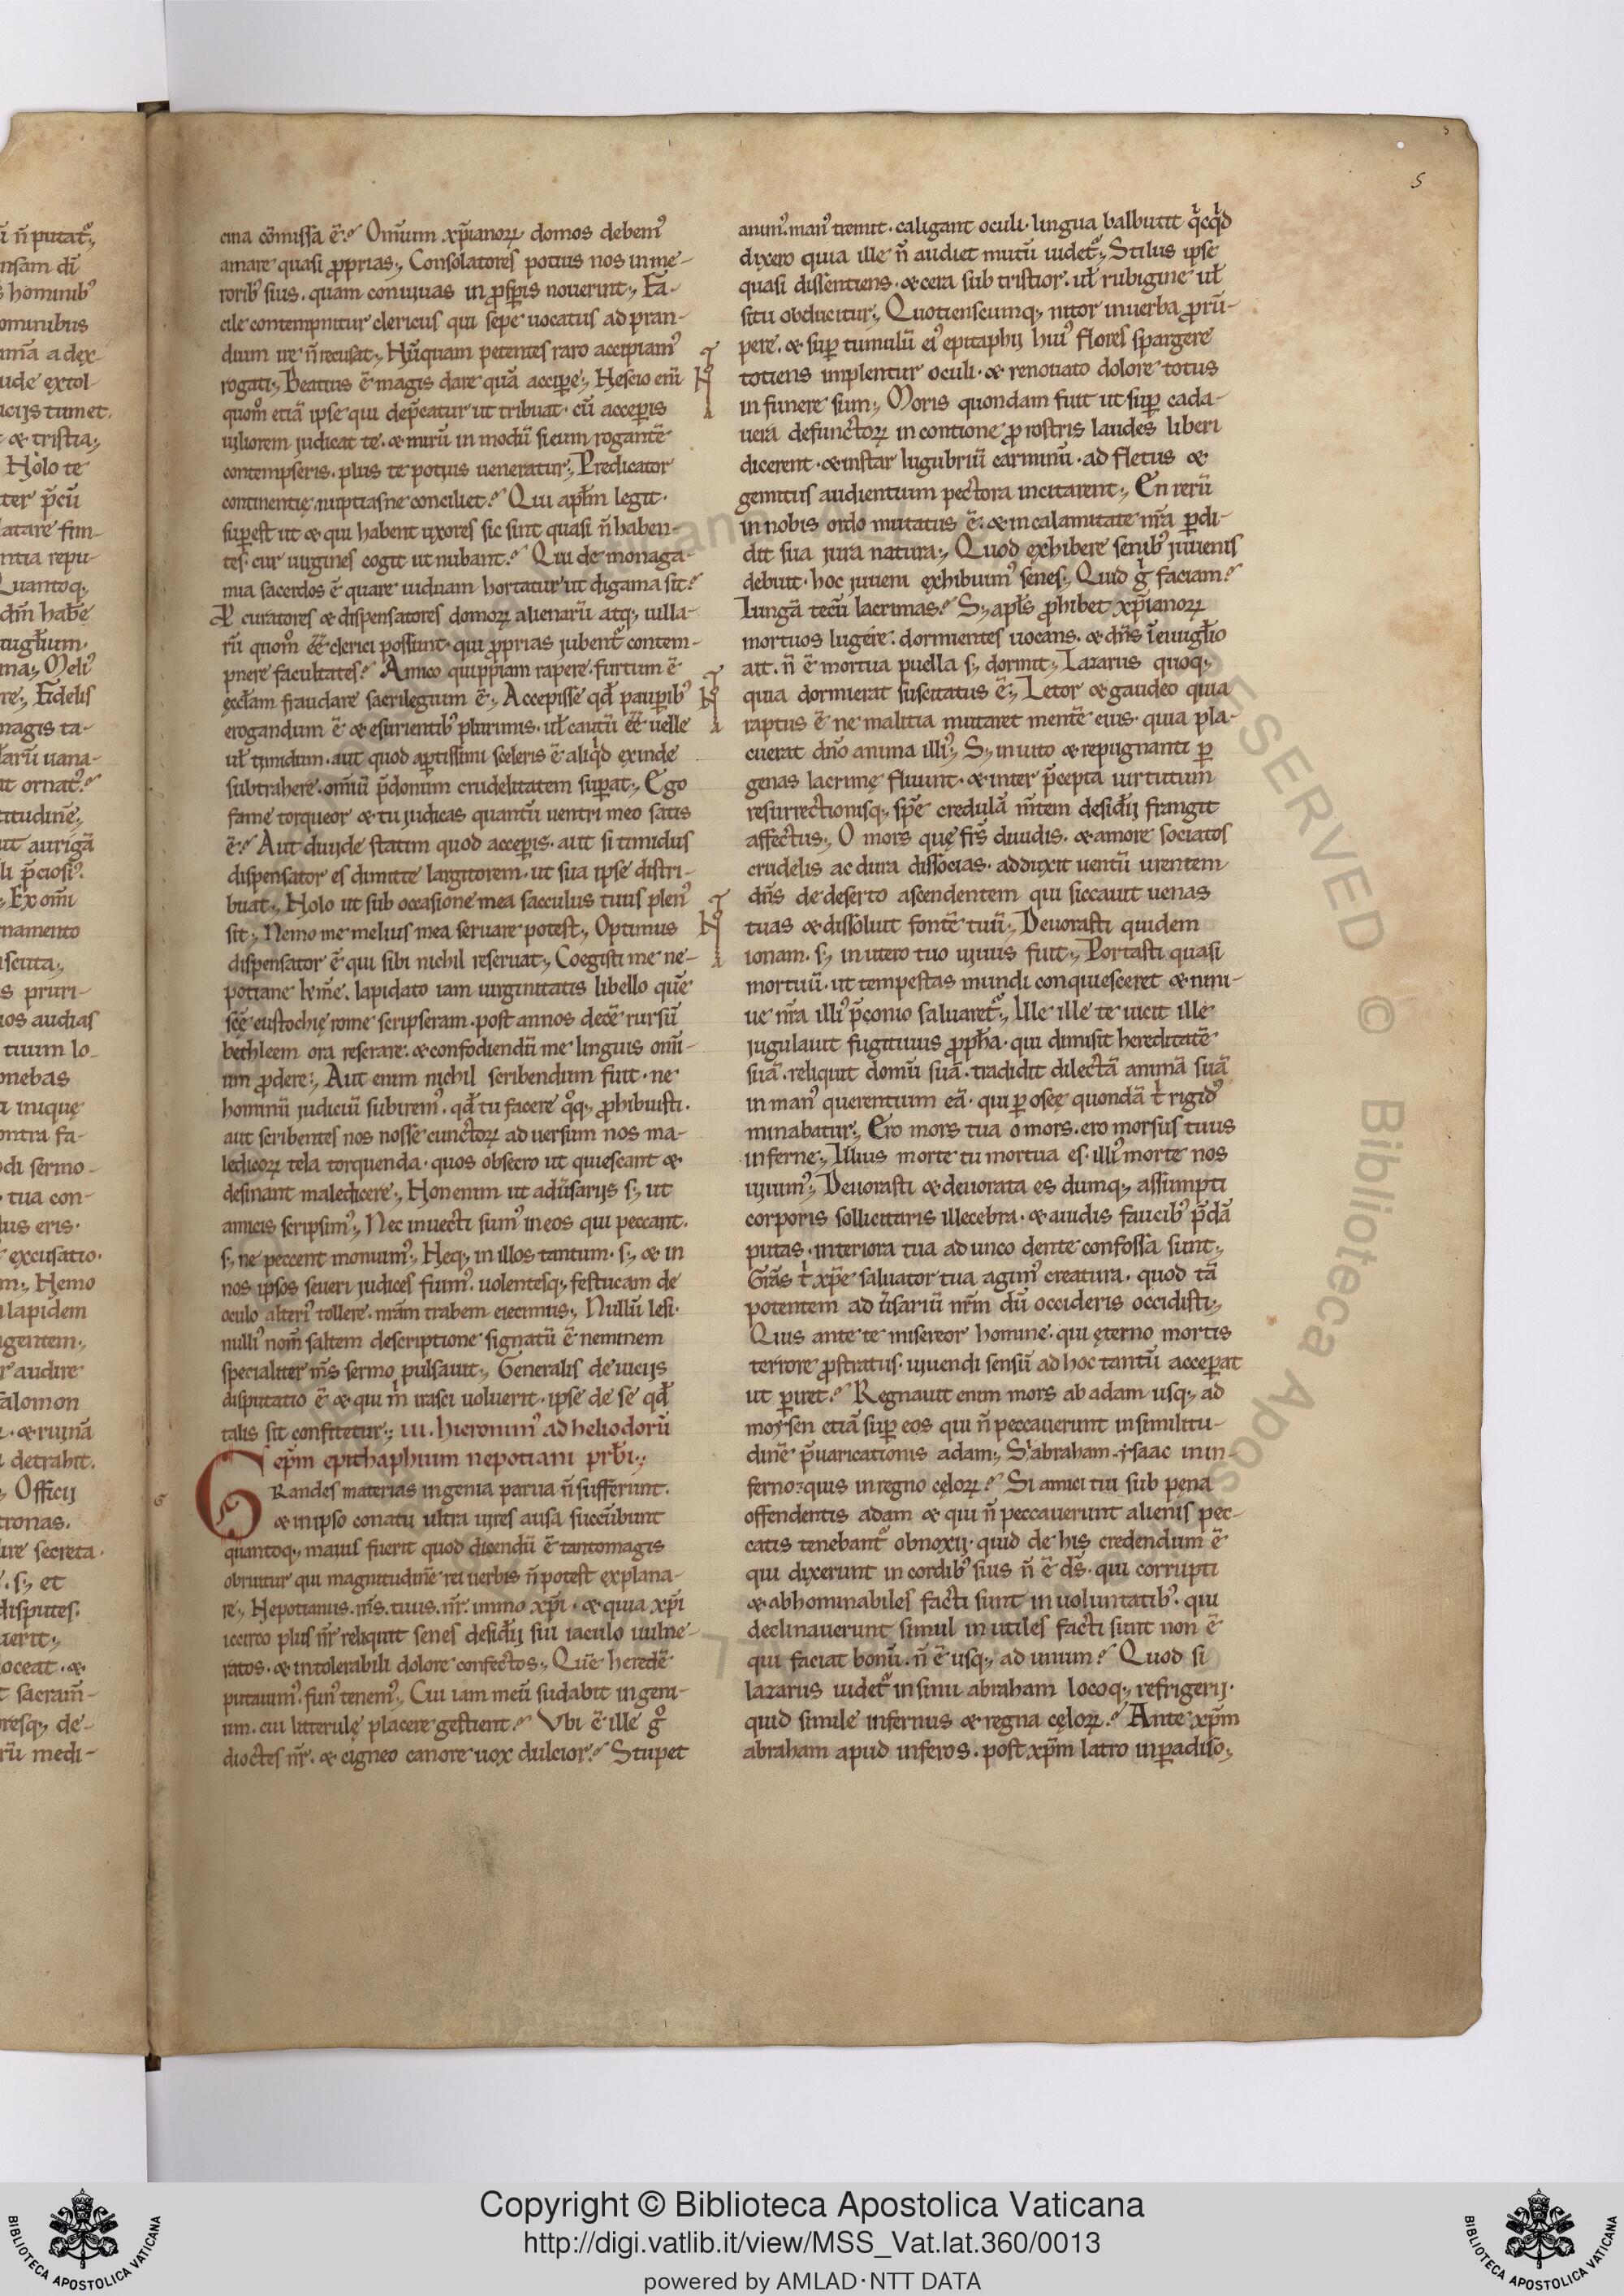 5
cina cōmissa ē. Om̄ium xp̄ianoꝝ domos debem᾽
amare quasi ꝓprias. Consolatores potius nos in me-
rorib᾽ suis. quam conuiuas in ꝓsꝑis nouerint. Fa-
cile contempnitur clericus qui sepe uocatus ad pran-
dium ire n̄ recusat. Nūquam petentes raro accipiam᾽
rogati. Beatius ē magis dare quā acciꝑe. Nescio eni
quom̊ etiā ipse qui dep̄catur ut tribuat. cū acceꝑis
uiliorem judicat te. & mirū in modū si eum rogantē
contempseris. plus te potius ueneratur. Predicator
continentię nuptias ne conciliet. Qui apłm legit.
suꝑest ut & qui habent uxores sic sint quasi n̄ haben-
tes. cur uirgines cogit ut nubant. Qui de monaga-
mia sacerdos ē quare uiduam hortatur ut digama sit.
P curatores & dispensatores domoꝝ alienarū atq; uilla-
rū quom̊ ēē clerici possunt. qui ꝓprias jubent᾽ contem-
pnere facultates. Amico quippiam rapere. furtum ē
ęccłam fraudare sacrilegium ē. Accepisse qd̄ pauꝑib᾽
erogandum ē & esurientib᾽ plurimis. uł cautū ēē uelle
uł timidum. aut quod aꝑtissimi sceleris ē aliq̇d exinde
subtrahere. om̄iū p̄donum crudelitatem suꝑat. Ego
fame torqueor & tu judicas quantū uentri meo satis
ē. Aut diuide statim quod acceꝑis. aut si timidus
dispensator es dimitte largitorem. ut sua ipse distri-
buat. Nolo ut sub occasione mea sacculus tuus plen᾽
sit. Nemo me melius mea seruare potest. Optimus
dispensator ē qui sibi nichil reseruat. Coegisti me ne-
potiane kr̄me. lapidato iam uirginitatis libello quē
scē eustochię rome scripseram. post annos decē rursū
bethleem ora reserare. & confodiendū me linguis om̄i-
um ꝓdere. Aut enim nichil scribendum fuit. ne
hominū judiciū subirem᾽. qd̄ tu facere q̊q; ꝓhibuisti.
aut scribentes nos nosse cunctoꝝ aduersum nos ma-
ledicoꝝ tela torquenda. quos obsecro ut quiescant &
desinant maledicere. Non enim ut adūsarijs s; ut
amicis scripsim᾽. Nec inuecti sum᾽ in eos qui peccant.
s; ne peccent monuim᾽. Neq; in illos tantum. s; & in
nos ipsos seueri judices fuim᾽. uolentesq; festucam de
oculo alteri᾽ tollere. nr̄am trabem eiecimus. Nullū lesi.
nulli᾽ nom̄ saltem descriptione signatū ē neminem
specialiter m̄s sermo pulsauit. Generalis de uicijs
disputatio ē & qui m̊ irasci uoluerit. ipse de se qd̄
talis sit confitetur. iii. hieronim᾽ ad heliodorū
ep̄m epithaphium nepotiani prb̄i.
GRandes materias ingenia parua n̄ sufferunt.
& in ipso conatu ultra uires ausa succūbunt
quantoq; maius fuerit quod dicendū ē tanto magis
obruitur qui magnitudinē rei uerbis n̄ potest explana-
re. Nepotianus. m̄s. tuus. nr̄. immo xp̄i. & quia xp̄i
iccirco plus nr̄ reliquit senes desid̄ij sui iaculo uulne-
ratos. & intolerabili dolore confectos. Quē heredē
putauim᾽. fun᾽ tenem᾽. Cui iam meū sudabit ingeni-
um. cui litterulę placere gestient. Vbi ē ille g̊
dioctes nr̄. & cigneo canore uox dulcior. Stupet
anim᾽. man᾽ tremit. caligant oculi. lingua balbutit q̇cq̇d
dixero quia ille n̄ audiet mutū uidet᾽. Stilus ipse
quasi dissentiens. & cera subtristior. uł rubigine uł
situ obducitur. Quotienscumq; nitor in uerba ꝓrū-
pere. & suꝑ tumulū ei᾽ epitaphij hui᾽ flores spargere
totiens implentur oculi. & renouato dolore totus
in funere sum. Moris quondam fuit ut suꝑ cada-
uera defunctoꝝ in contione ꝓ rostris laudes liberi
dicerent. & instar lugubriū carminū. ad fletus &
gemitus audientium pectora incitarent. En rerū
in nobis ordo mutatus ē. & in calamitate nr̄a ꝑdi-
dit sua jura natura. Quod exhibere senib᾽ juuenis
debuit. hoc juueni exhibuim᾽ senes. Quid g̊ faciam.
Iungā tecū lacrimas. S; apł̄s ꝓhibet xp̄ianoꝝ
mortuos lugere. dormientes uocans. & dn̄s ī euuigłio
ait. n̄ ē mortua puella s; dormit. Lazarus quoq;
quia dormierat suscitatus ē. Letor & gaudeo quia
raptus ē ne malitia mutaret mentē eius. quia pla-
cuerat dn̄o anima illi᾽. S; inuito & repugnanti ꝑ
genas lacrimę fluunt. & inter p̄cepta uirtutum
resurrectionisq; spē credulā m̄tem desid̄ij frangit
affectus. O mors quę fr̄s diuidis. & amore sociatos
crudelis ac dura dissocias. adduxit uentū urentem
dn̄s de deserto ascendentem qui siccauit uenas
tuas & dissoluit fontē tuū. Deuorasti quidem
ionam. s; in utero tuo uiuus fuit. Portasti quasi
mortuū. ut tempestas mundi conquiesceret & nini-
ue nr̄a illi᾽ p̄conio saluaret᾽. Ille ille te uicit ille
jugulauit fugitiuus ꝓpħa. qui dimisit hereditatē
suā. reliquit domū suā. tradidit dilectā animā suā
in man᾽ querentium eā. qui ꝑ osee quondā t̊ rigid᾽
minabatur. Ero mors tua o mors. ero morsus tuus
inferne. Illius morte tu mortua es. illi᾽ morte nos
uiuim᾽. Deuorasti & deuorata es dumq; assumpti
corporis sollicitaris illecebra. & auidis faucib᾽ p̄dā
putas. interiora tua adunco dente confossa sunt.
Grās t̊ xp̄e saluator tua agim᾽ creatura. quod tā
potentem adūsariū nr̄m dū occideris occidisti.
Quis ante te miserior homine. qui ęterno mortis
terrore ꝓstratus. uiuendi sensū ad hoc tantū acceꝑat
ut ꝑiret. Regnauit enim mors ab adam usq; ad
moysen etiā suꝑ eos qui n̄ peccauerunt in similitu-
dinē p̄uaricationis adam. Si abraham. ysaac in in-
ferno: quis in regno cęloꝝ. Si amici tui sub pęna
offendentis adam & qui n̄ peccauerunt alienis pec-
catis tenebant᾽ obnoxij. quid de his credendum ē
qui dixerunt in cordib᾽ suis n̄ ē ds̄. qui corrupti
& abhominabiles facti sunt in uoluntatib᾽. qui
declinauerunt simul inutiles facti sunt non ē
qui faciat bonū. n̄ ē usq; ad unum. Quod si
lazarus uidet᾽ in sinu abraham locoq; refrigerij.
quid simile infernus & regna cęloꝝ. Ante xp̄m
abraham apud inferos. post xp̄m latro in ꝑadiso.
Copyright © Biblioteca Apostolica Vaticana
http://digi.vatlib.it/view/MSS_Vat.lat.360/0013
powered by AMLAD·NTT DATA
BIBLIOTECA APOSTOLICA VATICANA
BIBLIOTECA APOSTOLICA VATICANA